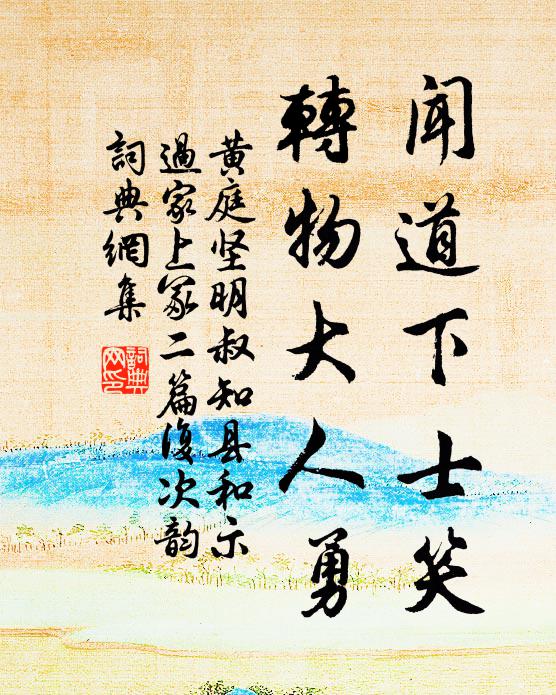 聞道下士笑
轉物大人勇
黄庭坚明叔知县和示
過家上冢二篇復次韵
詞典網集
詞典
网印